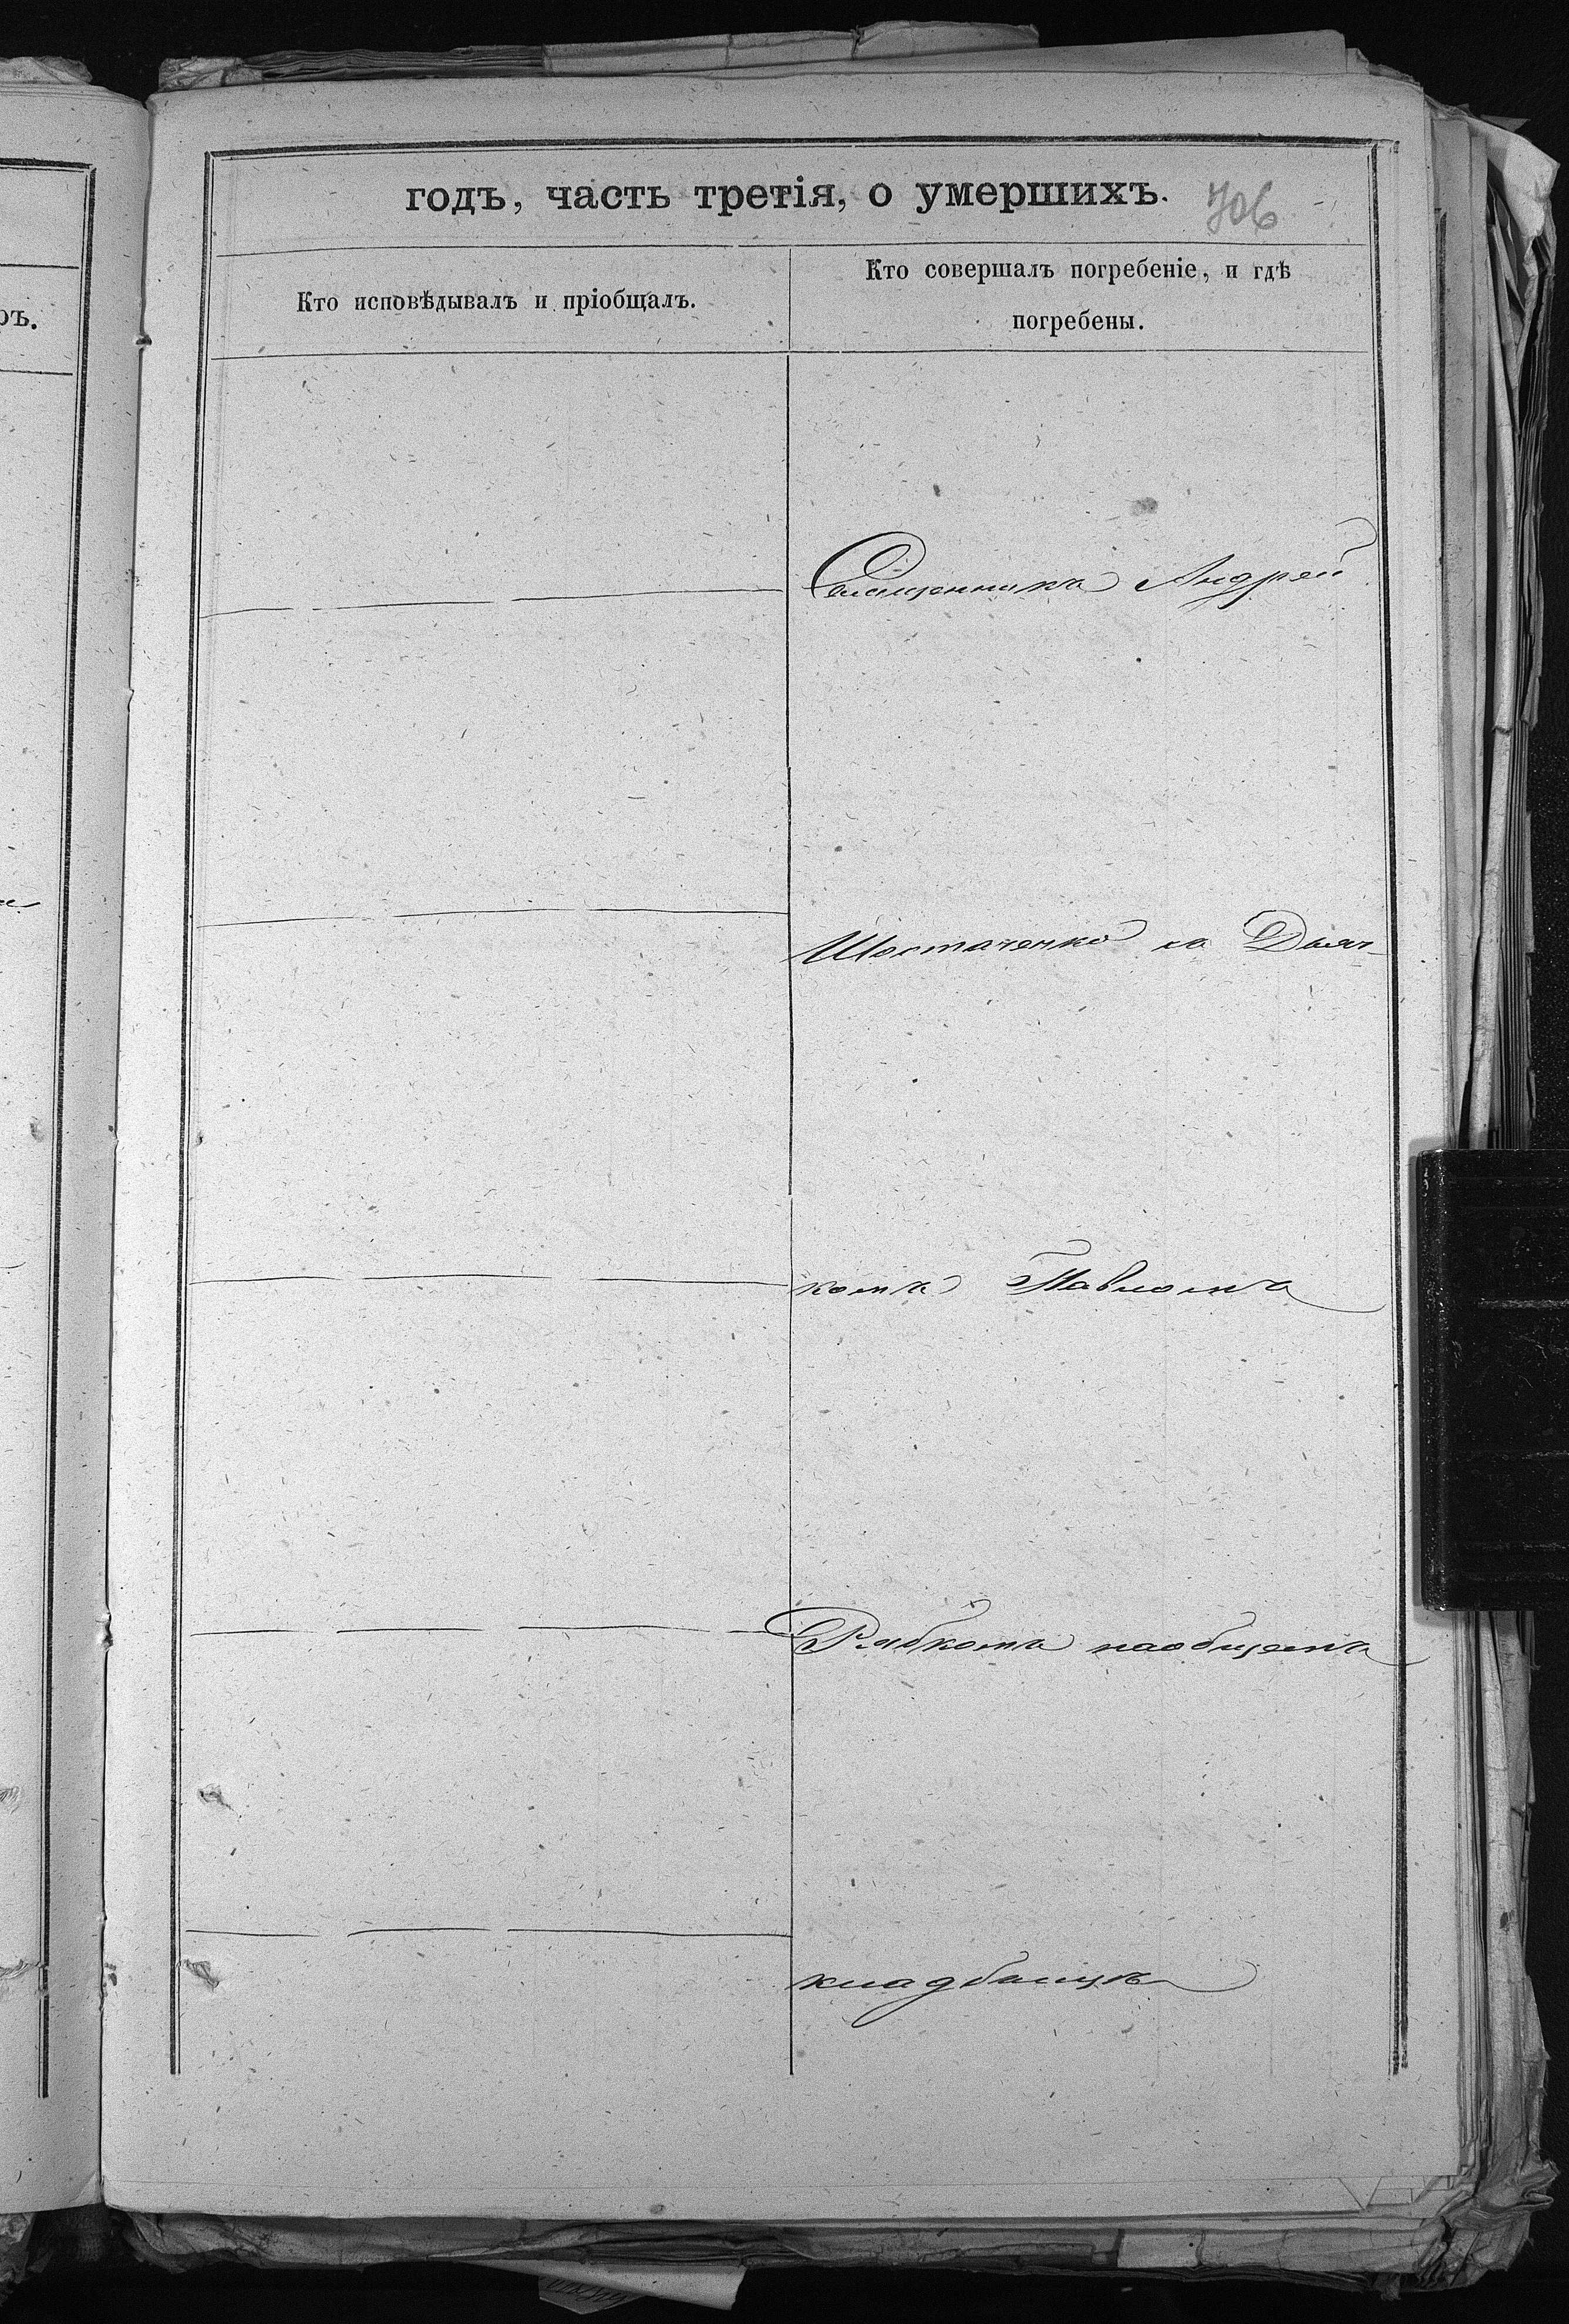 годъ, часть третія, о умершихъ.
706
Кто исповѣдывалъ и пріобщалъ.
Кто совершалъ погребеніе, и гдѣ
погребены.
Священникъ Андрей
Шостаченко съ Дьяч-
комъ Павломъ
Рябкомъ наобщемъ
кладбищѣ
ръ.